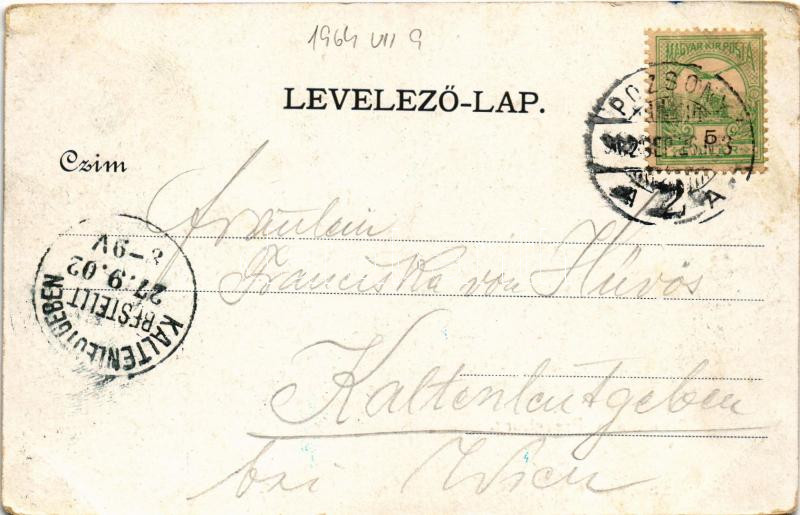 1964 VII 9
MAGYAR KIR. POSTA
5
LEVELEZŐ-LAP.
POZSONY
902 SEP 26
A 2 A
Czim
Fräulein
Franciska von Hüvös
Kaltenleutgeben
bei Wien
KALTENLEUTGEBEN
BESTELLT
27.9.02
8-9V